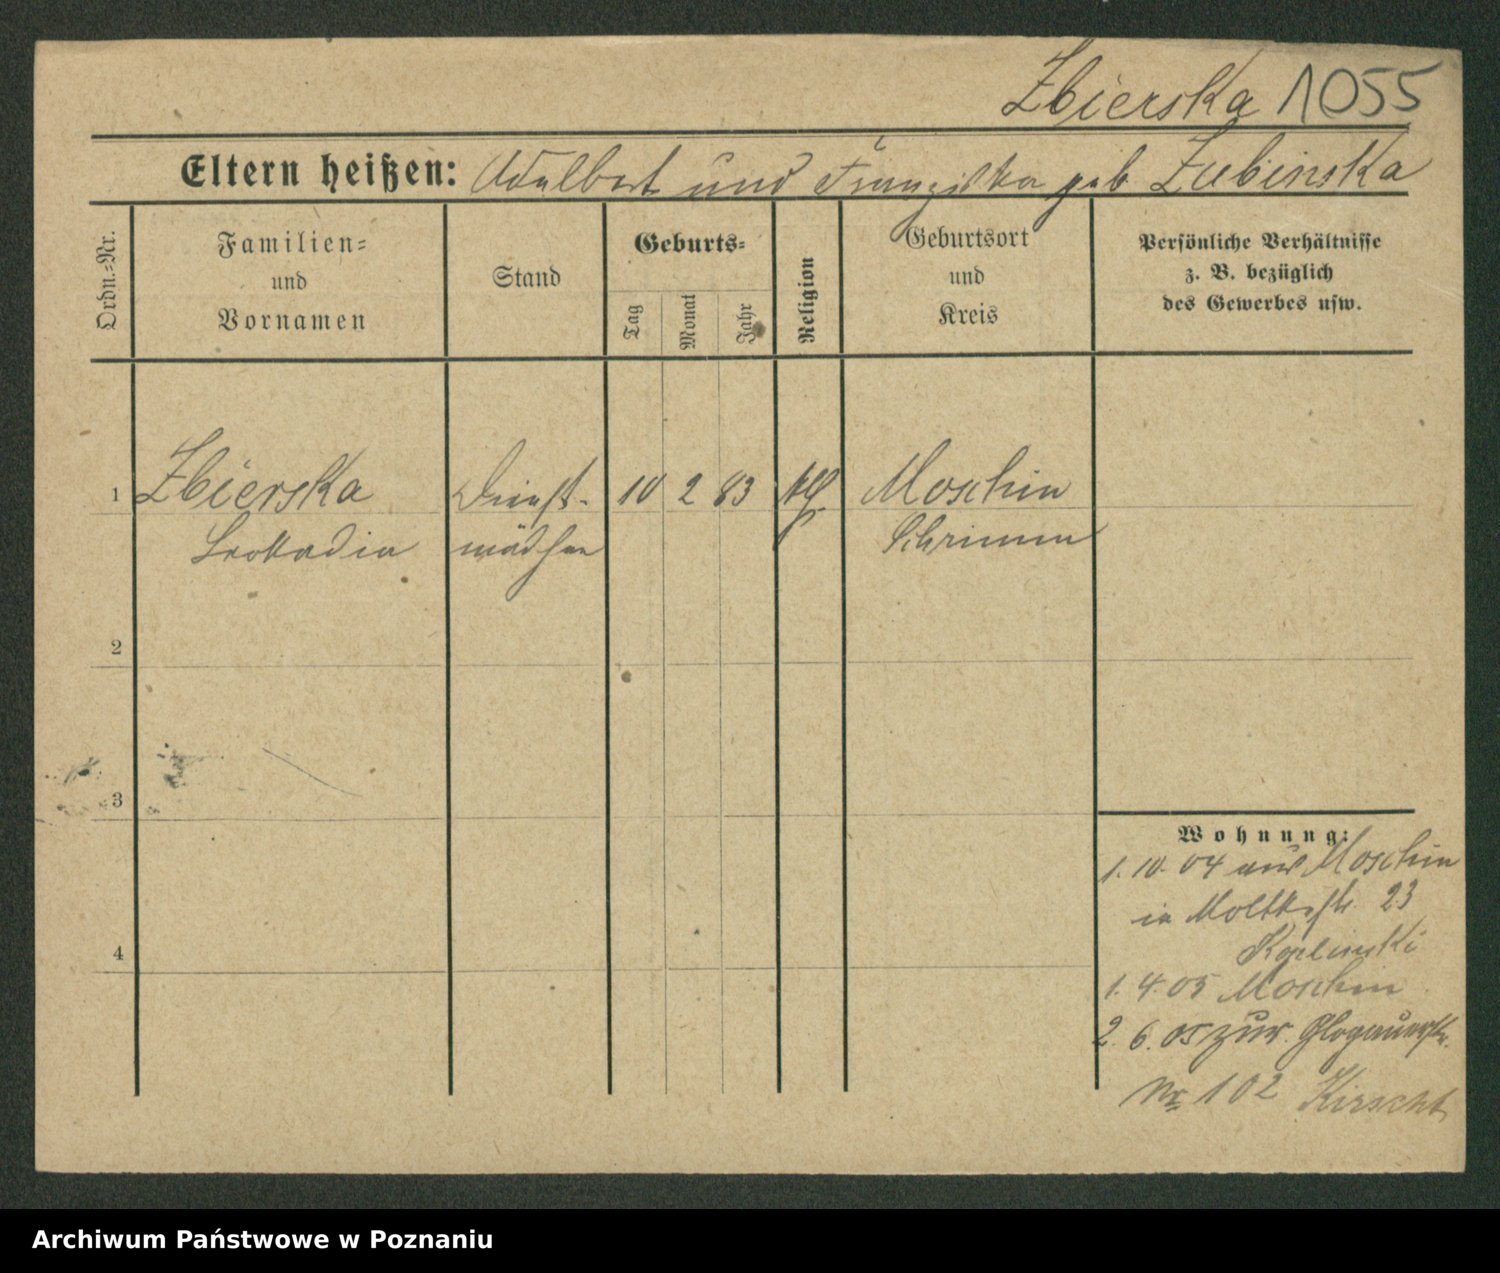 Zbierska 1055
Eltern heißen: Adalbert und Franziska geb Zubinska
Ordn.=Nr.
Familien=
und
Vornamen
Stand
Geburts=
Tag
Monat
Jahr
Religion
Geburtsort
und
Kreis
Persönliche Verhältnisse
z. B. bezüglich
des Gewerbes usw.
1 Zbierska Dienst- 10 2 83 Moschin
Leokadia mädchen Schrimm
2
3
4
Wohnung:
1. 10. 04 aus Moschin
in Moltkestr. 23
1. 4. 05 Moschin
2. 6. 05 zur. Glogauerstr.
Nr 102 Kirscht
Archiwum Państwowe w Poznaniu